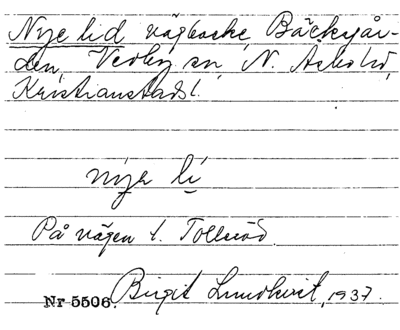 Nye lid vägbacke, Bäckgår-
den, Vedby sn, N. Åsbo hd,
Kristianstads l.
nya li
På vägen t. Tolleröd.
Nr 5506. Birgit Lundkvist, 1937.